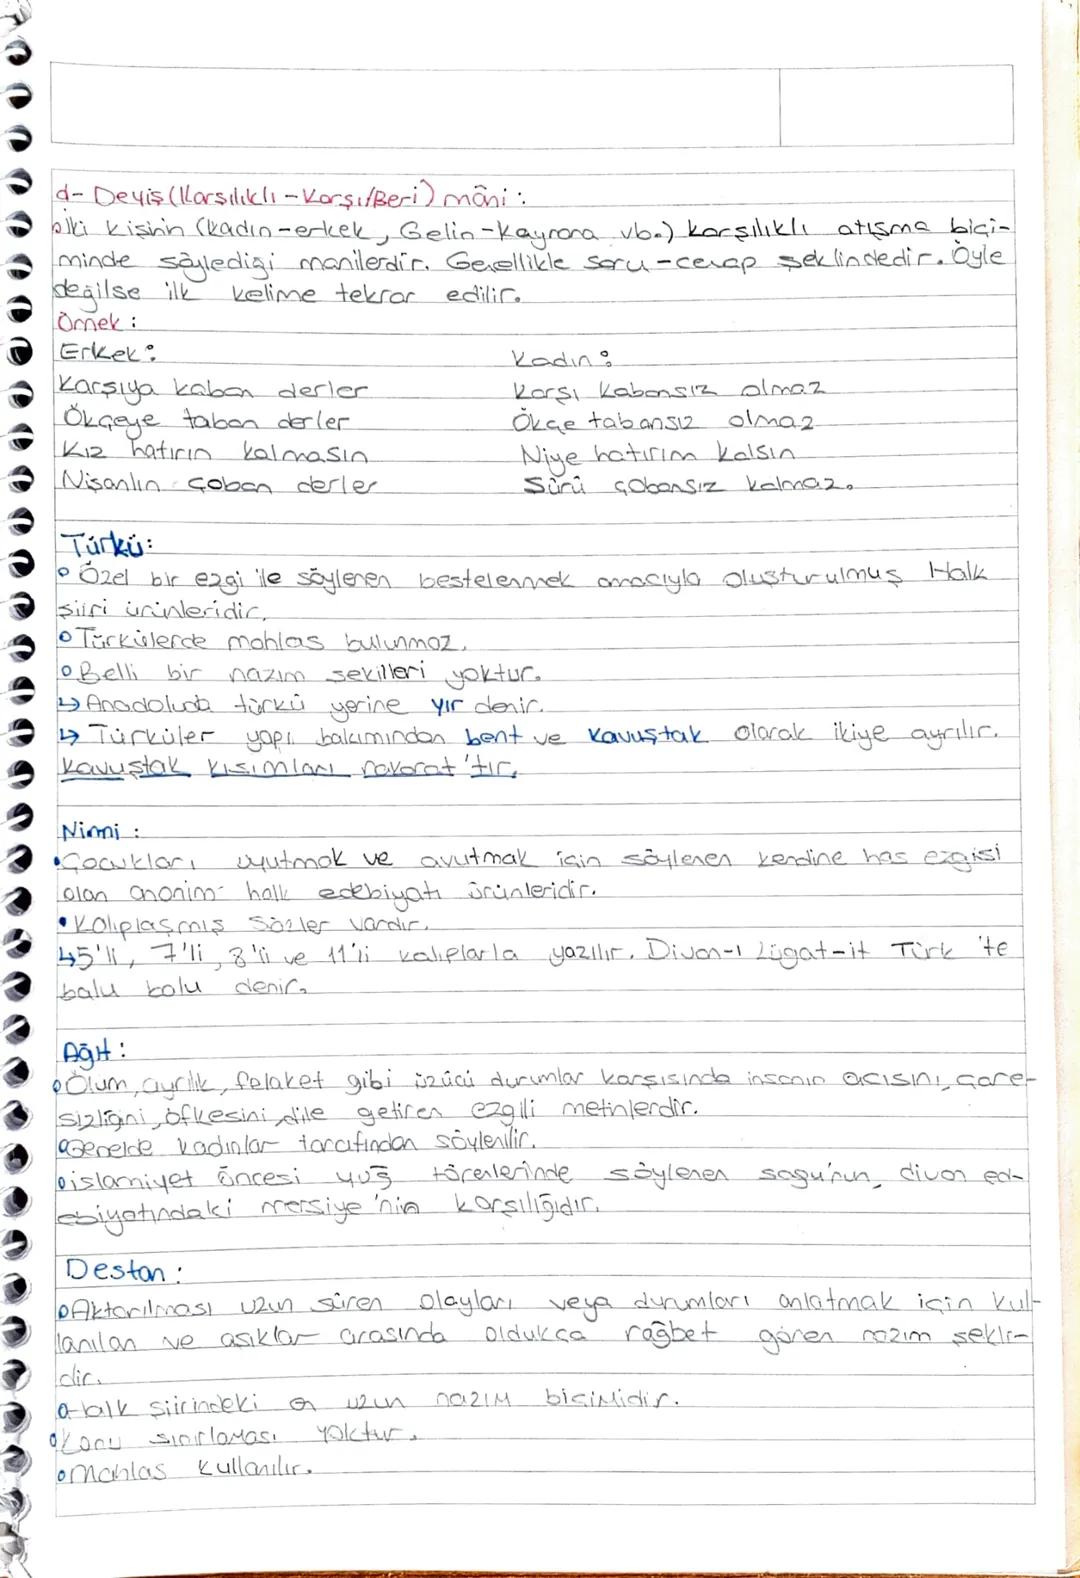 d- Deyiş (Karşılıklı - Karşı/Beri) mâni :
İki kişinin (kadın-erkek, Gelin-Kaynana vb.) karşılıklı atışma biçi-
minde söylediği manilerdir. Genellikle soru-cevap şeklindedir. Öyle
değilse ilk kelime tekrar edilir.
Örnek :
Erkek :
Kadın :
Karşıya kaban derler
Karşı kabansız olmaz
Ökçeye taban derler
Ökçe tabansız olmaz
Kız hatırın kalmasın
Niye hatırım kalsın
Nişanlın çoban derler
Sürü çobansız kalmaz.
Türkü:
Özel bir ezgi ile söylenen bestelenmek amacıyla oluşturulmuş Halk
şiiri ürünleridir.
Türkülerde mahlas bulunmaz.
Belli bir nazım şekilleri yoktur.
↳ Anadoluda türkü yerine yır denir.
↳ Türküler yapı bakımından bent ve kavuştak olarak ikiye ayrılır.
Kavuştak kısımları nakarat'tır.
Ninni :
• Çocukları uyutmak ve avutmak için söylenen kendine has ezgisi
olan anonim halk edebiyatı ürünleridir.
• Kalıplaşmış sözler vardır.
↳ 5'li, 7'li, 8'li ve 11'li kalıplarla yazılır. Divan-ı Lügat-it Türk 'te
balu balu denir.
Ağıt :
Ölüm, ayrılık, felaket gibi üzücü durumlar karşısında insanın acısını, çare-
sizliğini, öfkesini dile getiren ezgili metinlerdir.
Genelde kadınlar tarafından söylenilir.
islamiyet öncesi yuğ törenlerinde söylenen sagu'nun, divan ed-
ebiyatındaki mersiye 'nin karşılığıdır.
Destan :
Aktarılması uzun süren olayları veya durumları anlatmak için kul-
lanılan ve aşıklar arasında oldukça rağbet gören nazım şekli-
dir.
Halk şiirindeki en uzun nazım biçimidir.
Konu sınırlaması yoktur.
Mahlas kullanılır.